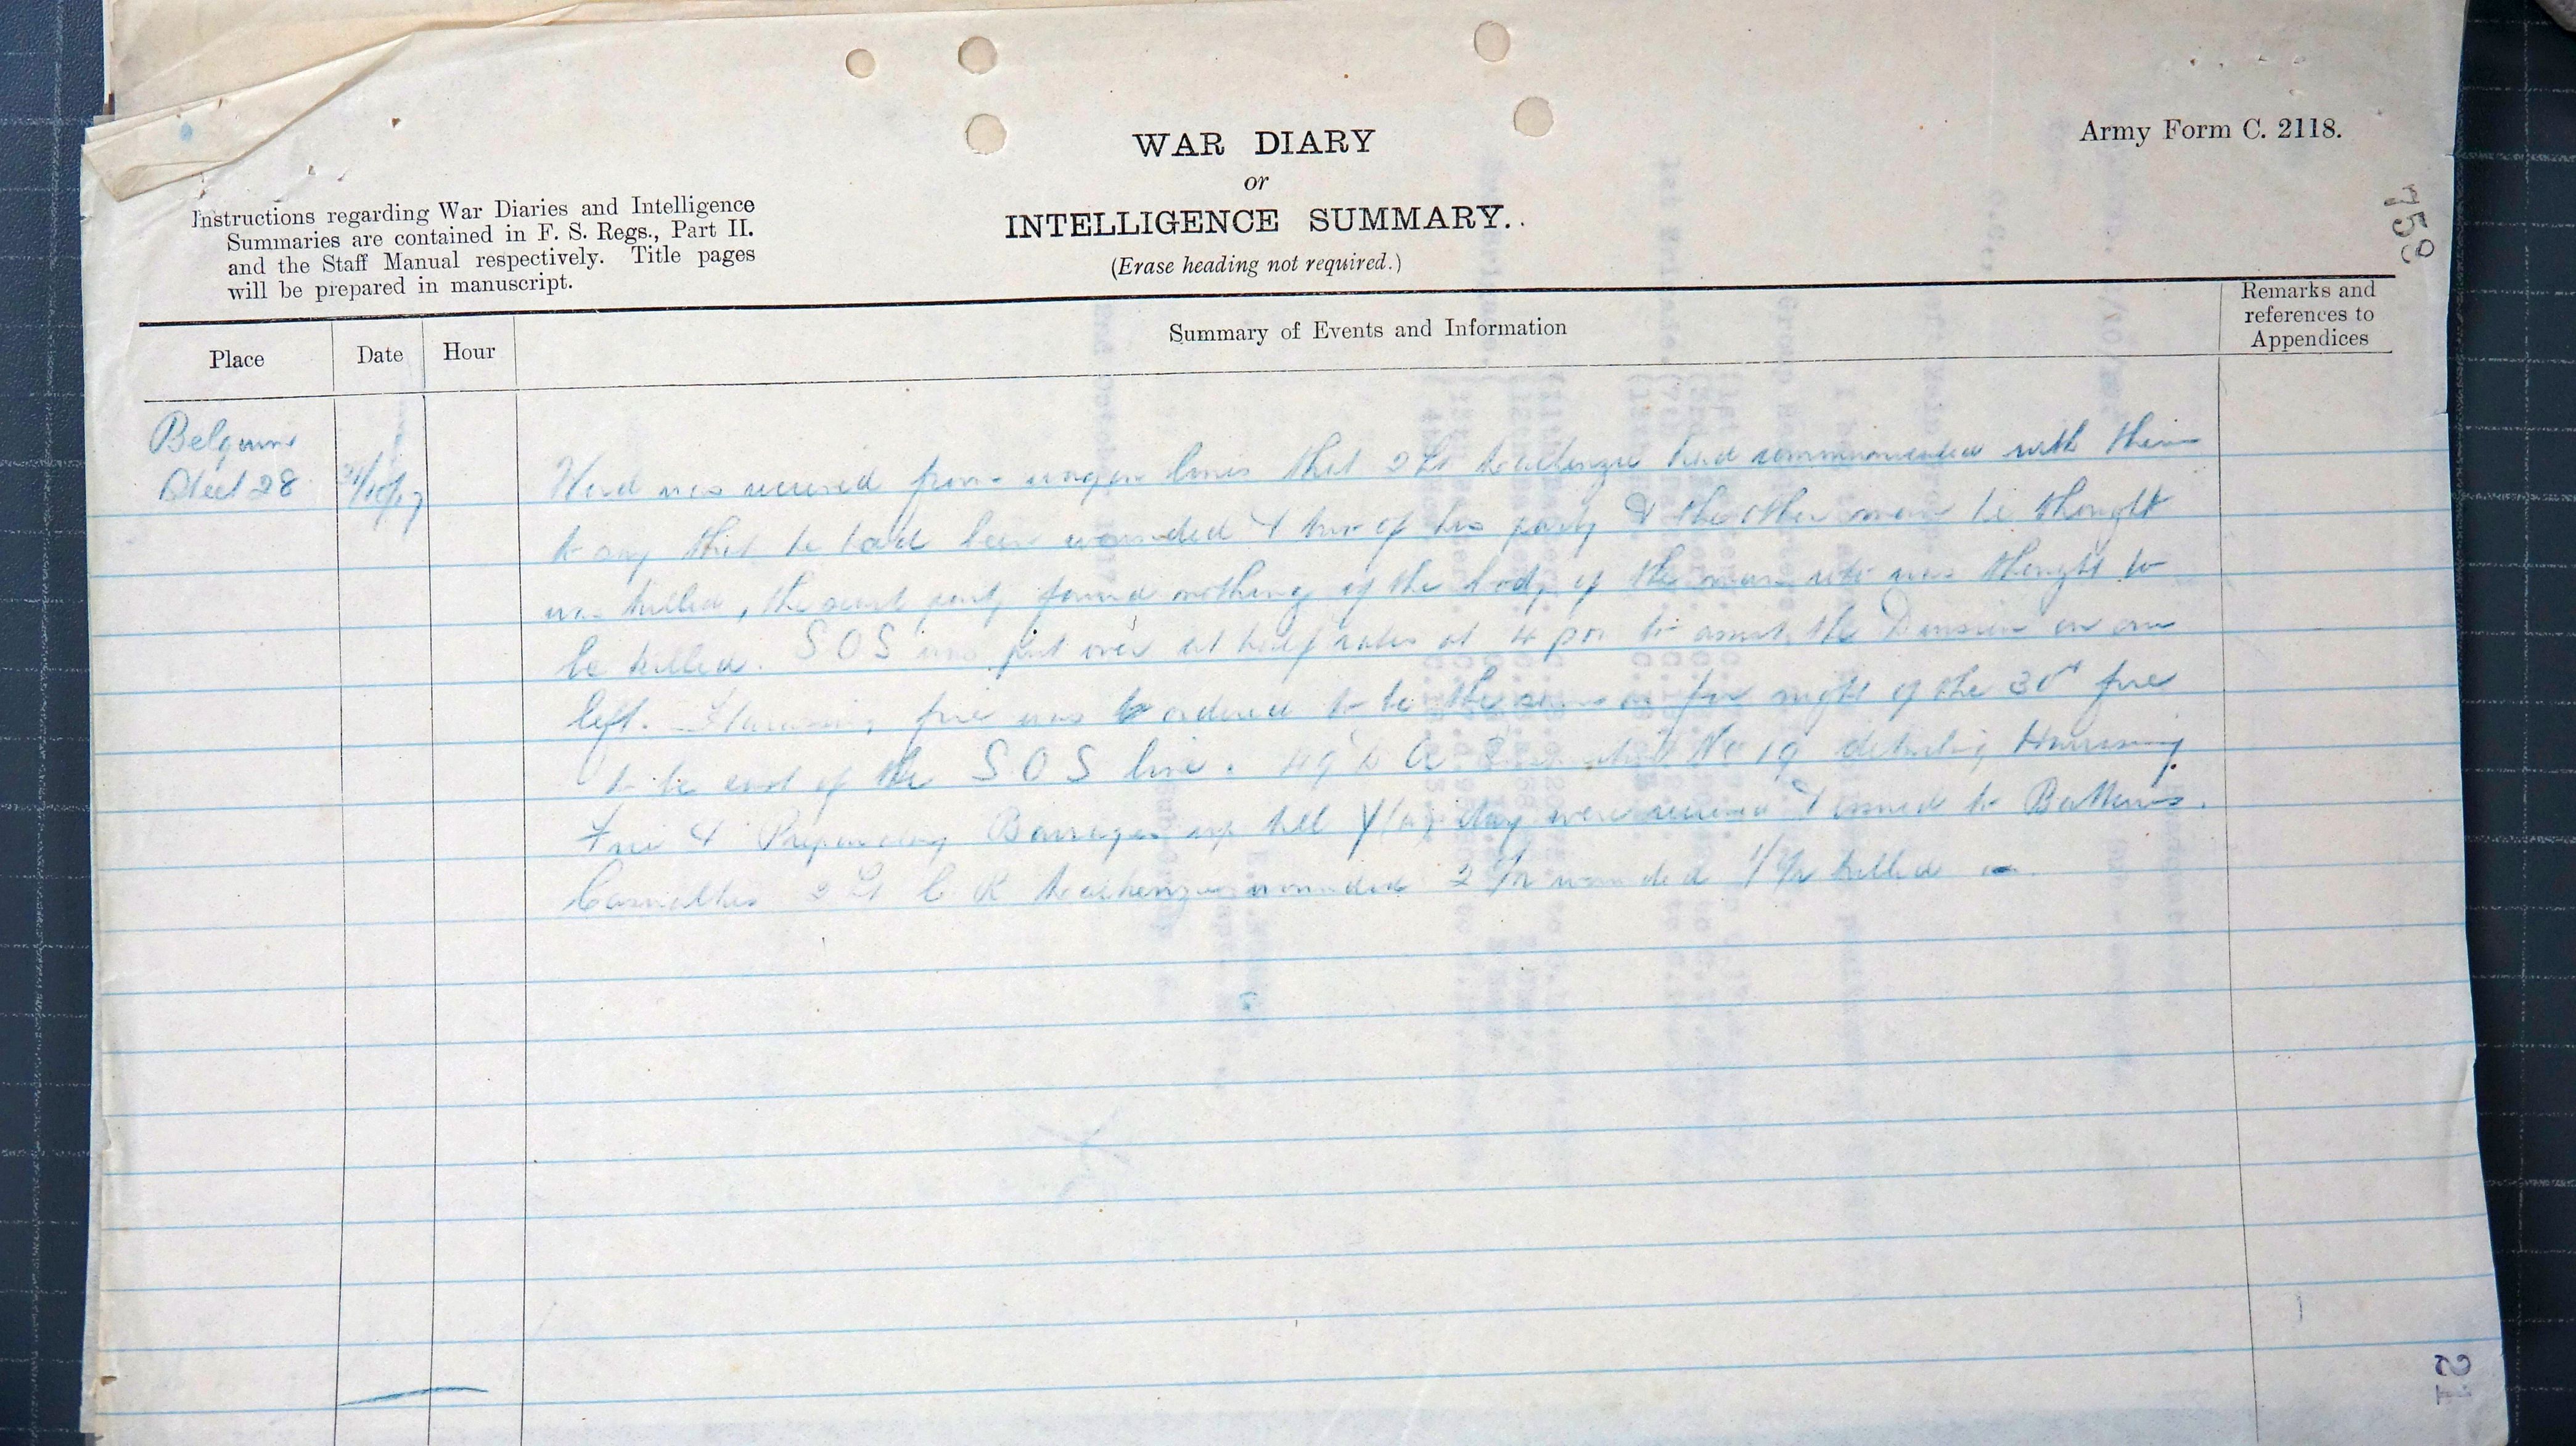 WAR DIARY
or
INTELLIGENCE SUMMARY.
(Erase heading not required.)
Army Form C. 2118.
Instructions regarding War Diaries and Intelligence
Summaries are contained in F. S. Regs., Part II.
and the Staff Manual respectively. Title pages
will be prepared in manuscript.
758
Place
Date
Hour
Summary of Events and Information
Remarks and
references to
Appendices
Belgium
Sheet 28
31/10/17
Word was received from wagon lines that 2Lt Mackenzie had communicated with them
to say that he had been wounded & two of his party & the other man he thought
was killed, the search party found nothing of the body of the man who was thought to
be killed. S O S was put over at half rates at 4 pm to assist the Division on our
left. Harassing fire was ordered to be the same as for night of the 30th fire
to be east of the S.O.S line. No 19 detailing Harassing
Fire & Preparatory Barrages up till day were received & issued to Batteries.
Casualties 2 Lt C K Mackenzie wounded 2 O/R wounded 1 O/R killed
21